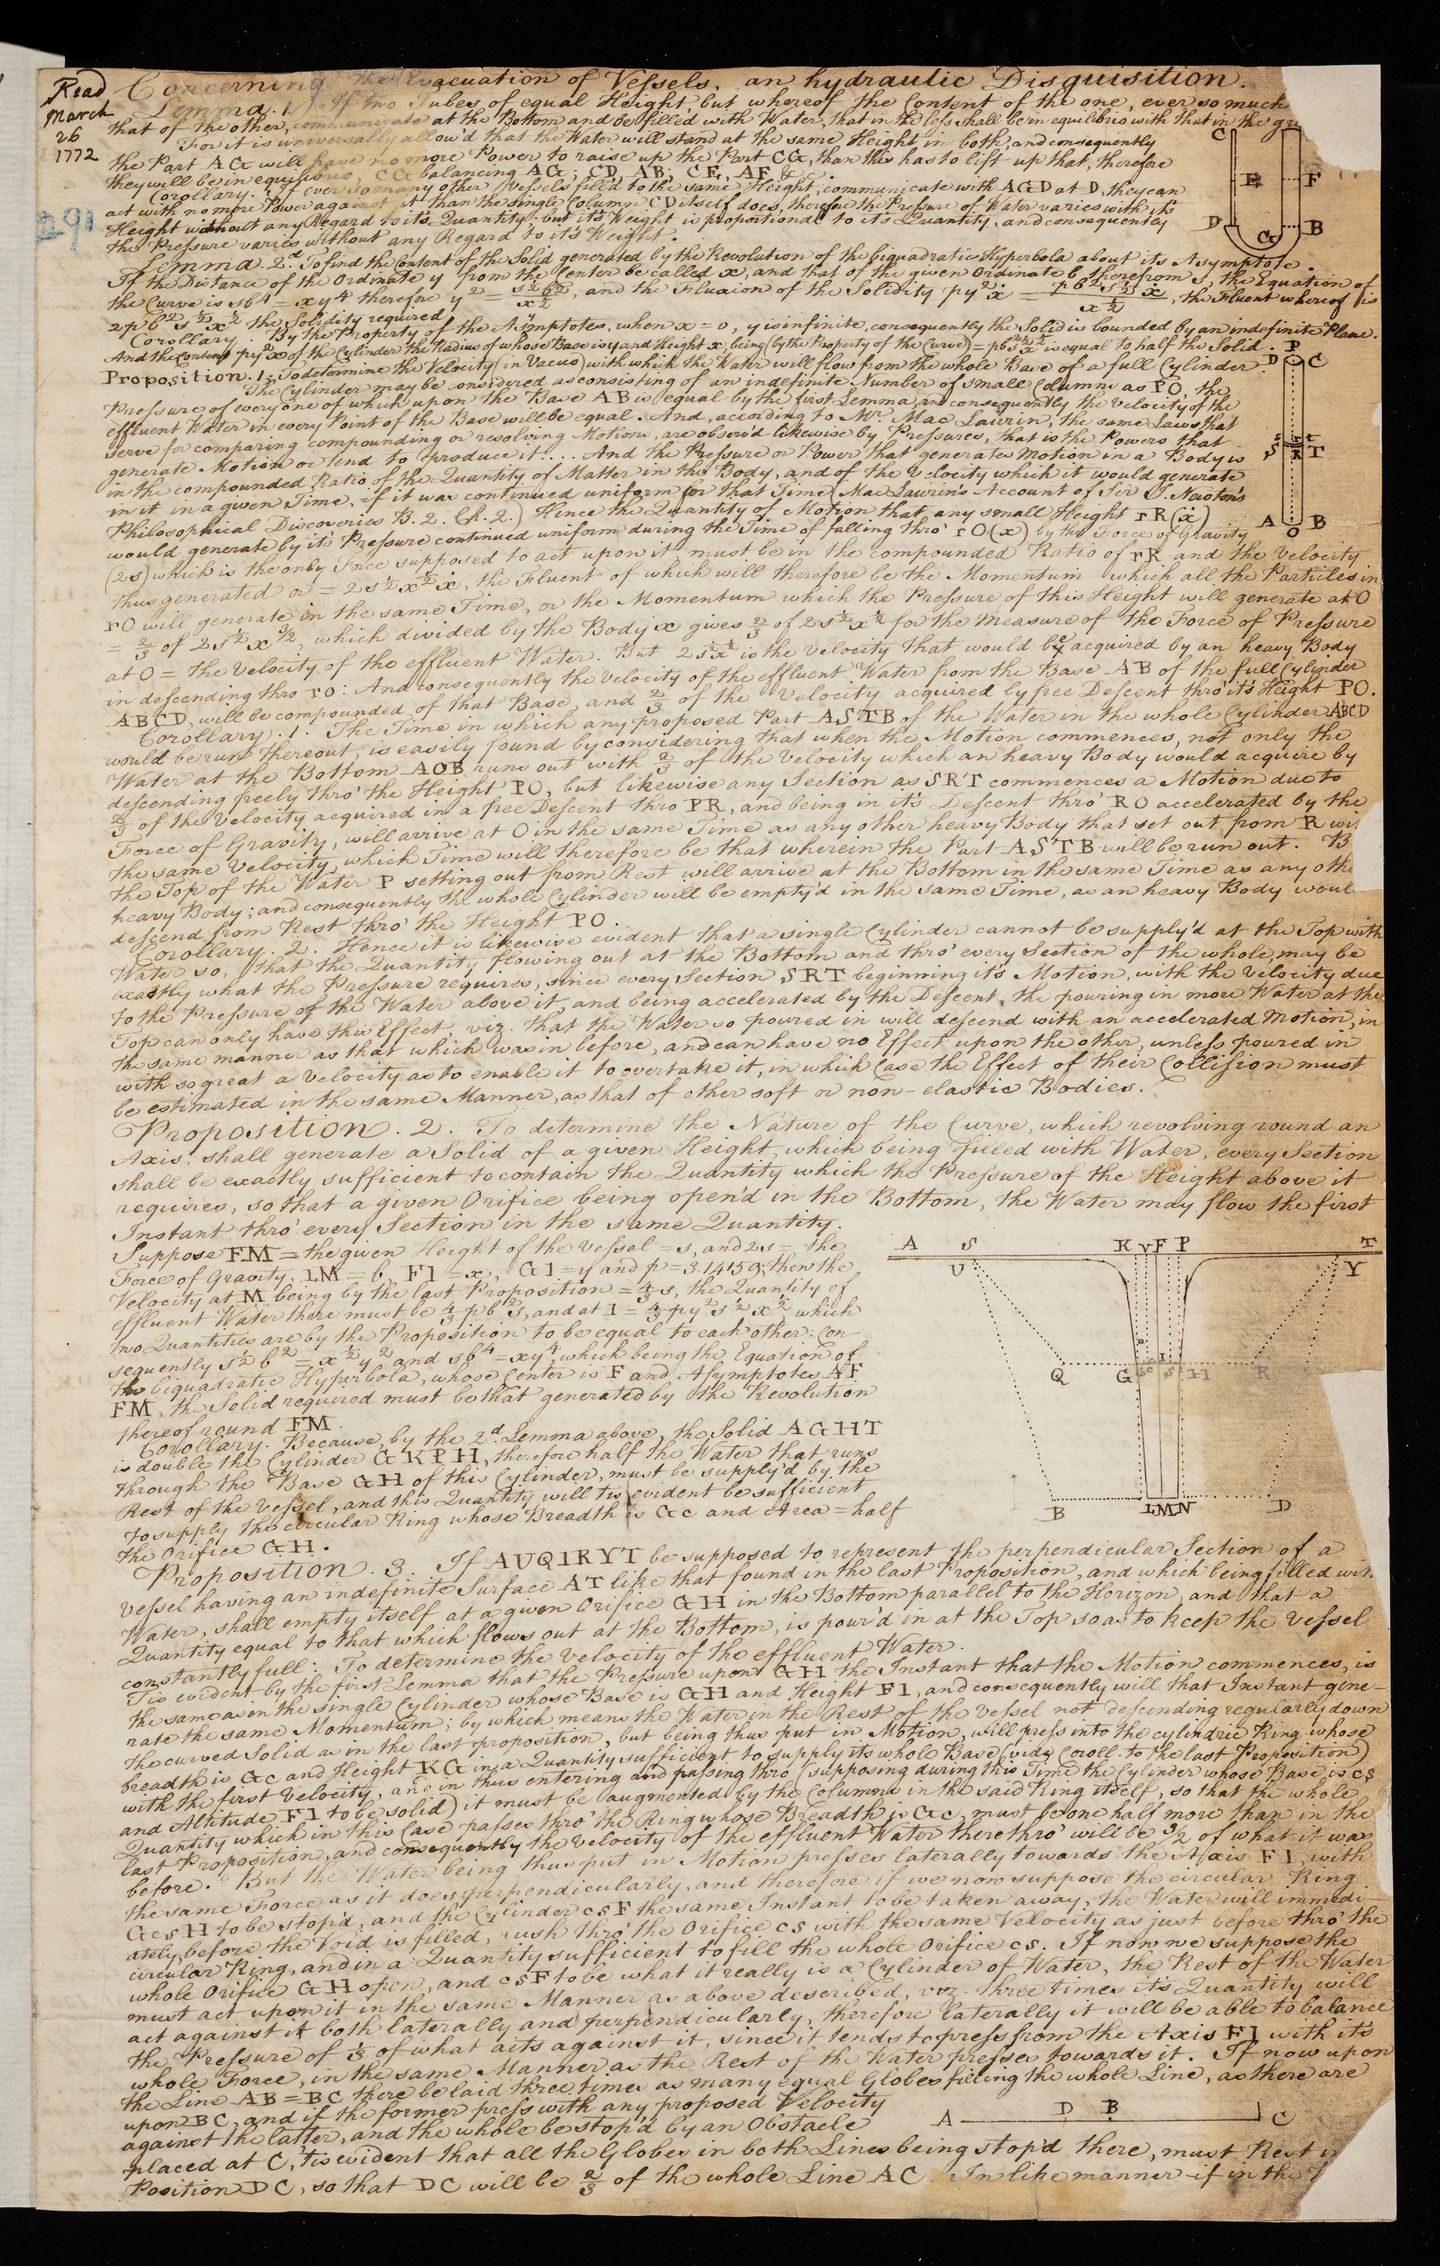 Read
March
26
1772
291
Concerning the Evacuation of Vessels, an hydraulic Disquisition.
Lemma. 1. If two Tubes of equal Height, but whereof the Content of the one, ever so much
that of the other, communicate at the Bottom and be filled with Water, that in the less shall be in equilibrio with that in the
For it is universally allow'd that the Water will stand at the same Height in both, and consequently
the Part AG will have no more Power to raise up the Part CG, than this has to lift up that, therefore
they will be in equilibrio, CG balancing AG; CD, AB; CE, AF &c.
Corollary. If ever so many other Vessels fill'd to the same Height, communicate with AGD at D, they can
act with no more Power against it than the single Column CD itself does, therefore the Pressure of Water varies with it's
Height without any Regard to it's Quantity; but it's Weight is proportional to it's Quantity, and consequently
the Pressure varies without any Regard to it's Weight.
Lemma. 2.d To find the Content of the Solid generated by the Revolution of the biquadratic Hyperbola about its Asymptote.
If the Distance of the Ordinate y from the Center be called x, and that of the given Ordinate b therefrom s, the Equation of
the Curve is sb⁴ = xy⁴ therefore y² = s½b²/x½, and the Fluxion of the Solidity py²ẋ = pb²s½ẋ/x½, the Fluent whereof is
2pb²s½x½ the Solidity required.
Corollary. By the Property of the Asymptotes, when x = 0, y is infinite, consequently the Solid is bounded by an indefinite Plane.
And the Content py²x of the Cylinder the Radius of whose Base is y and Height x, being (by the Property of the Curve) = pb²s½x½ is equal to half the Solid.
Proposition. 1. To determine the Velocity (in Vacuo) with which the Water will flow from the whole Base of a full Cylinder.
The Cylinder may be considered as consisting of an indefinite Number of small Columns as PO, the
Pressure of every one of which upon the Base AB is equal by the first Lemma, and consequently the Velocity of the
effluent Water in every Point of the Base will be equal. And, according to Mr. Mac Laurin, the same Laws that
serve for comparing compounding or resolving Motions, are observ'd likewise by Pressures, that is the Powers that
generate Motion or tend to produce it.... And the Pressure or Power that generates Motion in a Body is
in the compounded Ratio of the Quantity of Matter in the Body, and of the Velocity which it would generate
in it in a given Time, if it was continued uniform for that Time (Mac Laurin's Account of Sir I. Newton's
Philosophical Discoveries B. 2. Ch. 2.) Hence the Quantity of Motion that any small Height rR (ẋ)
would generate by it's Pressure continued uniform during the Time of falling thro' rO (x) by the Force of Gravity
(2s) which is the only Force supposed to act upon it, must be in the compounded Ratio of rR and the Velocity
thus generated or = 2s½x½ẋ, the Fluent of which will therefore be the Momentum which all the Particles in
rO will generate in the same Time, or the Momentum which the Pressure of this Height will generate at O
= 2/3 of 2s½x3/2, which divided by the Body x gives 2/3 of 2s½x½ for the Measure of the Force of Pressure
at O = the Velocity of the effluent Water. But 2s½x½ is the Velocity that would be acquired by an heavy Body
in descending thro rO: And consequently the Velocity of the effluent Water from the Base AB of the full Cylinder
ABCD, will be compounded of that Base, and 2/3 of the Velocity acquired by free Descent thro' it's Height PO.
Corollary. 1. The Time in which any proposed Part ASTB of the Water in the whole Cylinder ABCD
would be run thereout, is easily found by considering that when the Motion commences, not only the
Water at the Bottom AOB runs out with 2/3 of the Velocity which an heavy Body would acquire by
descending freely thro' the Height PO, but likewise any Section as SRT commences a Motion due to
2/3 of the Velocity acquired in a free Descent thro PR, and being in it's Descent thro' RO accelerated by the
Force of Gravity, will arrive at O in the same Time as any other heavy Body that set out from R
the same Velocity, which Time will therefore be that wherein the Part ASTB will be run out.
the Top of the Water P setting out from Rest will arrive at the Bottom in the same Time as any
heavy Body; and consequently the whole Cylinder will be empty'd in the same Time, as an heavy Body
descend from Rest thro' the Height PO.
Corollary. 2. Hence it is likewise evident that a single Cylinder cannot be supply'd at the Top with
Water so, that the Quantity flowing out at the Bottom and thro' every Section of the whole, may be
exactly what the Pressure requires, since every Section SRT beginning it's Motion, with the Velocity due
to the Pressure of the Water above it, and being accelerated by the Descent, the pouring in more Water at the
Top can only have this Effect, viz. that the Water so poured in will descend with an accelerated Motion, in
the same manner as that which was in before, and can have no Effect upon the other, unless poured in
with so great a Velocity as to enable it to overtake it, in which Case the Effect of their Collision must
be estimated in the same Manner, as that of other soft or non-elastic Bodies.
Proposition. 2. To determine the Nature of the Curve, which revolving round an
Axis, shall generate a Solid of a given Height, which being filled with Water, every Section
shall be exactly sufficient to contain the Quantity which the Pressure of the Height above it
requires, so that a given Orifice being open'd in the Bottom, the Water may flow the first
Instant thro' every Section in the same Quantity.
Suppose FM = the given Height of the Vessel = s, and 2s = the
Force of Gravity, LM = b, FI = x, GI = y and p = 3.14159; then the
Velocity at M being by the last Proposition = 4/3 s, the Quantity of
effluent Water there must be 4/3 pb²s, and at I = 4/3 py²s½x½ which
two Quantities are by the Proposition to be equal to each other: Con-
sequently s½b² = x½y² and sb⁴ = xy⁴, which being the Equation of
the biquadratic Hyperbola, whose Center is F and Asymptotes AF
FM, the Solid required must be that generated by the Revolution
thereof round FM.
Corollary. Because, by the 2d Lemma above, the Solid AGHT
is double the Cylinder GKPH, therefore half the Water that runs
through the Base GH of this Cylinder, must be supply'd by the
Rest of the Vessel, and this Quantity will tis evident be sufficient
to supply the circular Ring whose Breadth is Gc and Area = half
the Orifice GH.
Proposition. 3. If AUQIRYT be supposed to represent the perpendicular Section of a
Vessel having an indefinite Surface AT like that found in the last Proposition, and which being filled
Water, shall empty itself at a given Orifice GH in the Bottom parallel to the Horizon, and that a
Quantity equal to that which flows out at the Bottom, is pour'd in at the Top so as to keep the Vessel
constantly full: To determine the Velocity of the effluent Water.
Tis evident by the first Lemma that the Pressure upon GH the Instant that the Motion commences, is
the same as in the single Cylinder whose Base is GH and Height FI, and consequently will that Instant gene-
rate the same Momentum; by which means the Water in the Rest of the Vessel not descending regularly down
the curved Solid as in the last proposition, but being thus put in Motion, will press into the cylindric Ring whose
breadth is Gc and Height KG in a Quantity sufficient to supply its whole Base (vide Coroll. to the last Proposition)
with the first Velocity, and in thus entering and passing thro' (supposing during this Time the Cylinder whose Base is cs
and Altitude FI to be solid) it must be augmented by the Columns in the said Ring itself, so that the whole
Quantity which in this Case passes thro' the Ring whose Breadth is Gc, must be one half more than in the
last Proposition, and consequently the Velocity of the effluent Water therethro' will be 3/2 of what it was
before. But the Water being thus put in Motion presses laterally towards the Axis FI, with
the same Force as it does perpendicularly, and therefore if we now suppose the circular Ring
GcsH to be stop'd, and the Cylinder csF the same Instant to be taken away, the Water will immedi-
ately, before the Void is filled, rush thro' the Orifice cs with the same Velocity as just before thro' the
circular Ring, and in a Quantity sufficient to fill the whole Orifice cs. If now we suppose the
whole Orifice GH open, and csF to be what it really is a Cylinder of Water, the Rest of the Water
must act upon it in the same Manner as above described, viz. three times it's Quantity will
act against it both laterally and perpendicularly, therefore laterally it will be able to balance
the Pressure of 1/3 of what acts against it, since it tends to press from the Axis FI with it's
whole Force, in the same Manner as the Rest of the Water presses towards it. If now upon
the Line AB = BC there be laid three times as many equal Globes filling the whole Line, as there are
upon BC, and if the former press with any proposed Velocity
against the latter, and the whole be stop'd by an Obstacle
placed at C, 'tis evident that all the Globes in both Lines being stop'd there, must Rest
Position DC, so that DC will be 2/3 of the whole Line AC. In like manner if in the
C
E F
D G B
P
D C
s r t
S R T
A B
O
A S K V F P T
U Y
Q G c I s H R
B L M N D
A D B C